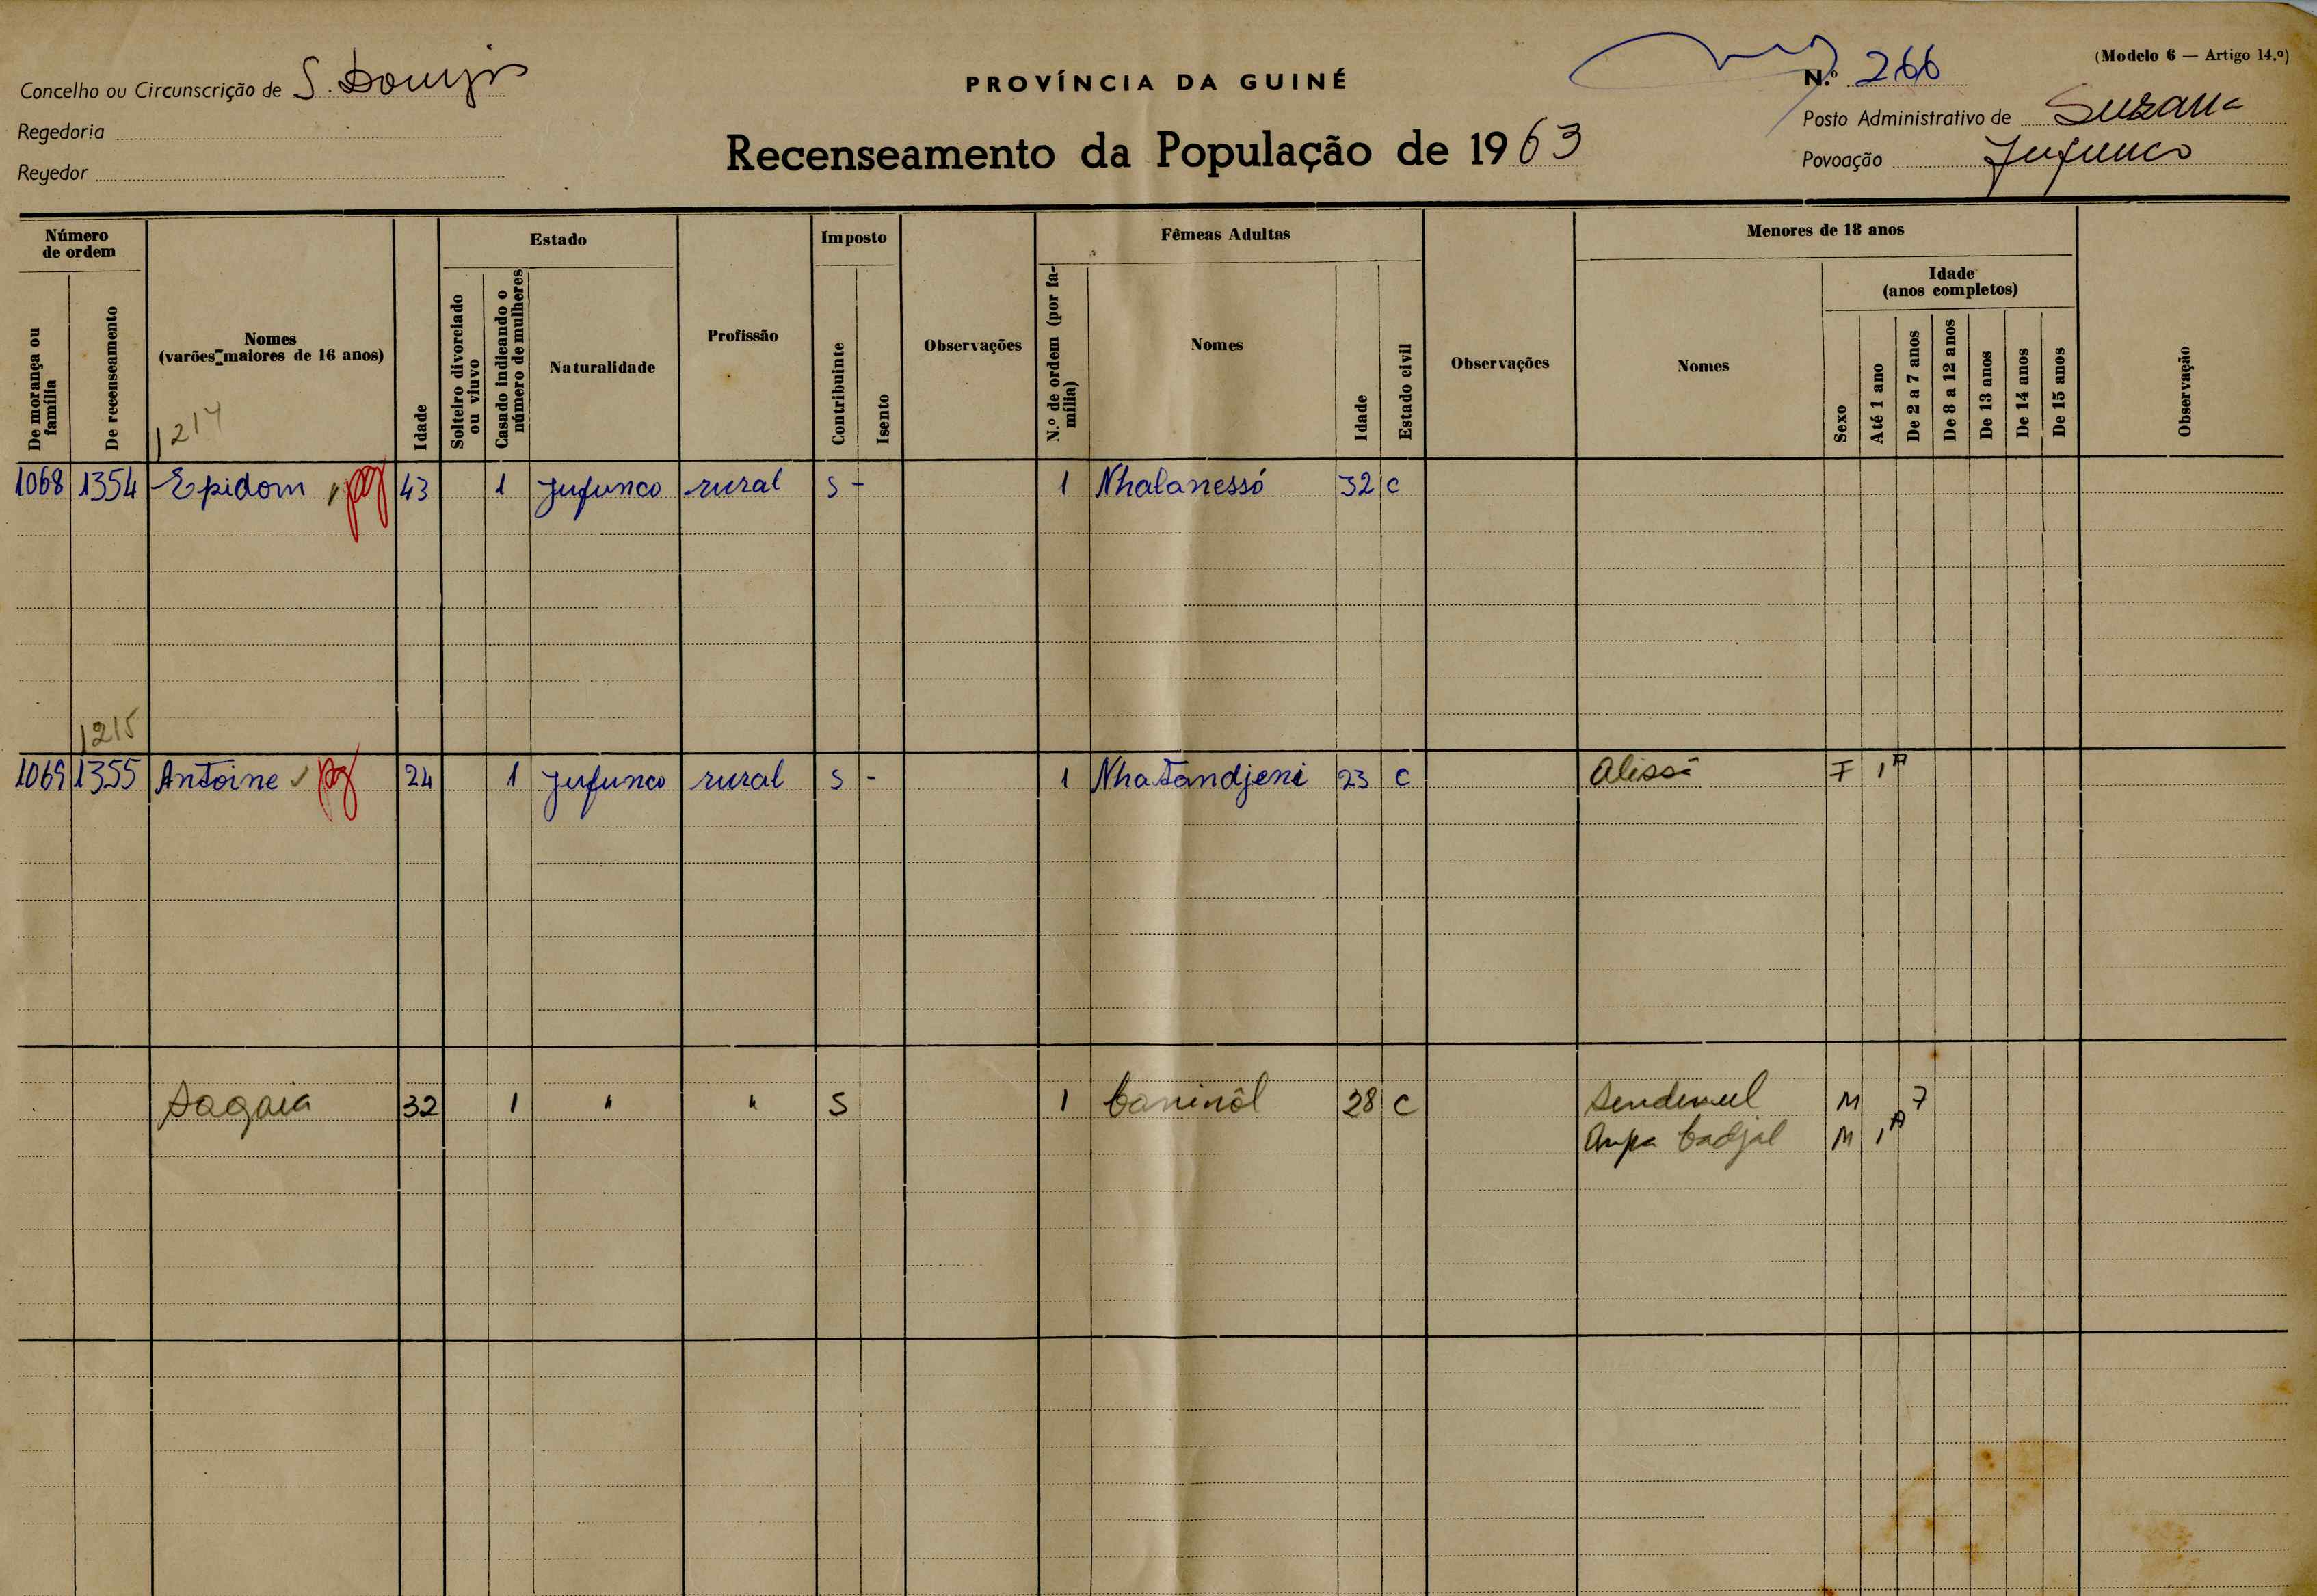 (Modelo 6 — Artigo 14.º)
Concelho ou Circunscrição de S. Domingos
PROVÍNCIA DA GUINÉ
N.º 266
Regedoria
Posto Administrativo de Suzana
Recenseamento da População de 1963
Regedor
Povoação Jufunco
Número de ordem
De morança ou família
De recenseamento
Nomes
(varões maiores de 16 anos)
Idade
Estado
Solteiro divorciado ou viuvo
Casado indicando o número de mulheres
Naturalidade
Profissão
Imposto
Contribuinte
Isento
Observações
Fêmeas Adultas
N.º de ordem (por família)
Nomes
Idade
Estado civil
Observações
Menores de 18 anos
Nomes
Sexo
Idade
(anos completos)
Até 1 ano
De 2 a 7 anos
De 8 a 12 anos
De 13 anos
De 14 anos
De 15 anos
Observação
1214
1068 1354 Epidom pg 43 1 Jufunco rural S - 1 Nhalanessó 32 C
1215
1069 1355 Antoine pg 24 1 Jufunco rural S - 1 Nhatandjeni 23 C Alissé F 1A
Sagaia 32 1 " " S 1 Caninôl 28 C Sendemul M 7
Ampa Cadjal M 1A